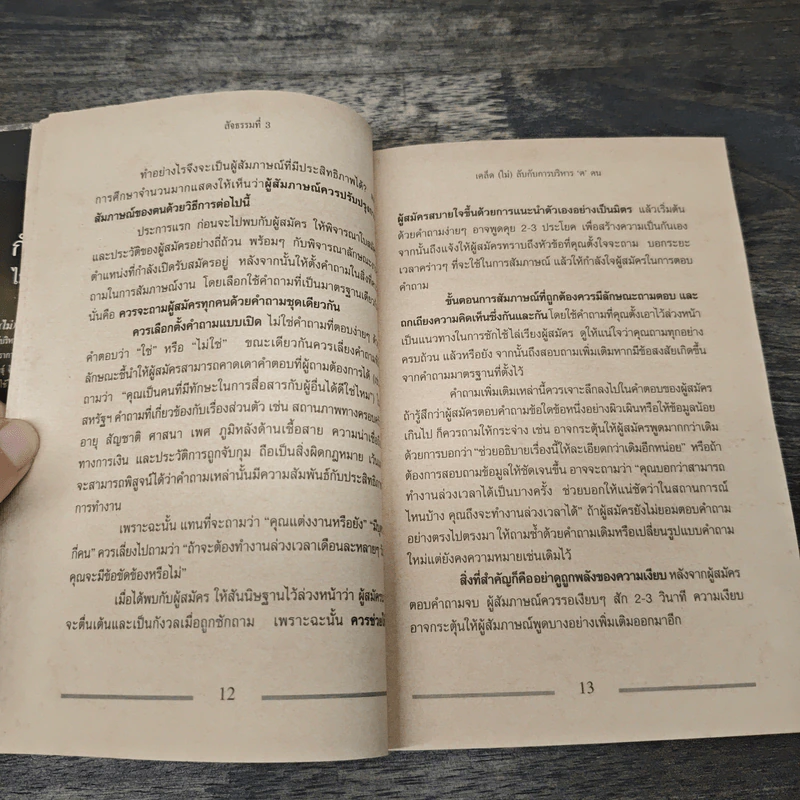 สัจธรรมที่ 3
ทำอย่างไรจึงจะเป็นผู้สัมภาษณ์ที่มีประสิทธิภาพได้?
การศึกษาจำนวนมากแสดงให้เห็นว่าผู้สัมภาษณ์ควรปรับปรุง
สัมภาษณ์ของตนด้วยวิธีการต่อไปนี้
ประการแรก ก่อนจะไปพบกับผู้สมัคร ให้พิจารณาใบสมัคร
และประวัติของผู้สมัครอย่างถี่ถ้วน พร้อมๆ กับพิจารณาลักษณะ
ตำแหน่งที่กำลังเปิดรับสมัครอยู่ หลังจากนั้นให้ตั้งคำถามในสิ่งที่
ถามในการสัมภาษณ์งาน โดยเลือกใช้คำถามที่เป็นมาตรฐานเดียวกัน
นั่นคือ ควรจะถามผู้สมัครทุกคนด้วยคำถามชุดเดียวกัน
ควรเลือกตั้งคำถามแบบเปิด ไม่ใช่คำถามที่ตอบง่ายๆ
คำตอบว่า “ใช่” หรือ “ไม่ใช่” ขณะเดียวกันควรเลี่ยงคำถาม
ลักษณะชี้นำให้ผู้สมัครสามารถคาดเดาคำตอบที่ผู้ถามต้องการได้
ถามว่า “คุณเป็นคนที่มีทักษะในการสื่อสารกับผู้อื่นได้ดีใช่ไหม”
สหรัฐฯ คำถามที่เกี่ยวข้องกับเรื่องส่วนตัว เช่น สถานภาพทางครอบครัว
อายุ สัญชาติ ศาสนา เพศ ภูมิหลังด้านเชื้อสาย ความน่าเชื่อ
ทางการเงิน และประวัติการถูกจับกุม ถือเป็นสิ่งผิดกฎหมาย
จะสามารถพิสูจน์ได้ว่าคำถามเหล่านั้นมีความสัมพันธ์กับประสิทธิภาพ
การทำงาน
เพราะฉะนั้น แทนที่จะถามว่า “คุณแต่งงานหรือยัง”
กี่คน” ควรเลี่ยงไปถามว่า “ถ้าจะต้องทำงานล่วงเวลาเดือนละหลายๆ
คุณจะมีข้อขัดข้องหรือไม่”
เมื่อได้พบกับผู้สมัคร ให้สันนิษฐานไว้ล่วงหน้าว่า ผู้สมัคร
จะตื่นเต้นและเป็นกังวลเมื่อถูกซักถาม เพราะฉะนั้น ควรช่วย
12
เคล็ด (ไม่) ลับกับการบริหาร ‘ค’ คน
ผู้สมัครสบายใจขึ้นด้วยการแนะนำตัวเองอย่างเป็นมิตร แล้วเริ่มต้น
ด้วยคำถามง่ายๆ อาจพูดคุย 2-3 ประโยค เพื่อสร้างความเป็นกันเอง
จากนั้นถึงแจ้งให้ผู้สมัครทราบถึงหัวข้อที่คุณตั้งใจจะถาม บอกระยะ
เวลาคร่าวๆ ที่จะใช้ในการสัมภาษณ์ แล้วให้กำลังใจผู้สมัครในการตอบ
คำถาม
ขั้นตอนการสัมภาษณ์ที่ถูกต้องควรมีลักษณะถามตอบ และ
ถกเถียงความคิดเห็นซึ่งกันและกัน โดยใช้คำถามที่คุณตั้งเอาไว้ล่วงหน้า
เป็นแนวทางในการซักไซ้ไล่เรียงผู้สมัคร ดูให้แน่ใจว่าคุณถามทุกอย่าง
ครบถ้วน แล้วหรือยัง จากนั้นถึงสอบถามเพิ่มเติมหากมีข้อสงสัยเกิดขึ้น
จากคำถามมาตรฐานที่ตั้งไว้
คำถามเพิ่มเติมเหล่านี้ควรเจาะลึกลงไปในคำตอบของผู้สมัคร
ถ้ารู้สึกว่าผู้สมัครตอบคำถามข้อใดข้อหนึ่งอย่างผิวเผินหรือให้ข้อมูลน้อย
เกินไป ก็ควรถามให้กระจ่าง เช่น อาจกระตุ้นให้ผู้สมัครพูดมากกว่าเดิม
ด้วยการบอกว่า “ช่วยอธิบายเรื่องนี้ให้ละเอียดกว่าเดิมอีกหน่อย” หรือถ้า
ต้องการสอบถามข้อมูลให้ชัดเจนขึ้น อาจจะถามว่า “คุณบอกว่าสามารถ
ทำงานล่วงเวลาได้เป็นบางครั้ง ช่วยบอกให้แน่ชัดว่าในสถานการณ์
ไหนบ้าง คุณถึงจะทำงานล่วงเวลาได้” ถ้าผู้สมัครยังไม่ยอมตอบคำถาม
อย่างตรงไปตรงมา ให้ถามซ้ำด้วยคำถามเดิมหรือเปลี่ยนรูปแบบคำถาม
ใหม่แต่ยังคงความหมายเช่นเดิมไว้
สิ่งที่สำคัญก็คืออย่าดูถูกพลังของความเงียบ หลังจากผู้สมัคร
ตอบคำถามจบ ผู้สัมภาษณ์ควรรอเงียบๆ สัก 2-3 วินาที ความเงียบ
อาจกระตุ้นให้ผู้สัมภาษณ์พูดบางอย่างเพิ่มเติมออกมาอีก
13